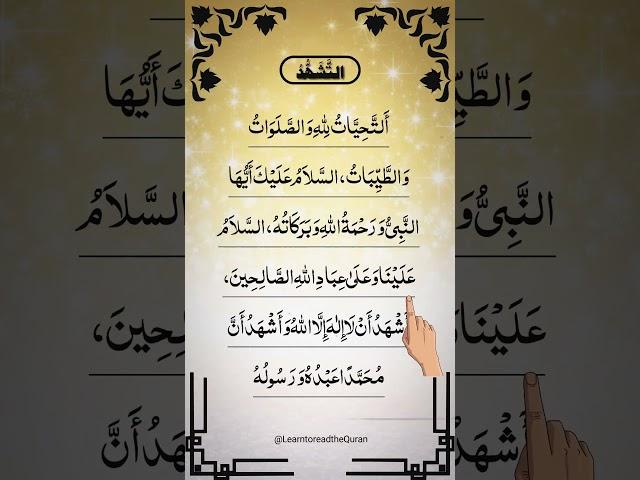 التَّشَهُّدُ
أَلتَّحِيَّاتُ لِلّٰهِ وَالصَّلَوَاتُ
وَالطَّيِّبَاتُ، السَّلاَمُ عَلَيْكَ أَيُّهَا
النَّبِيُّ وَرَحْمَةُ اللهِ وَبَرَكَاتُهُ، السَّلاَمُ
عَلَيْنَا وَعَلَىٰ عِبَادِ اللهِ الصَّالِحِينَ،
أَشْهَدُ أَنْ لَا إِلٰهَ إِلَّا اللهُ وَأَشْهَدُ أَنَّ
مُحَمَّدًا عَبْدُهُ وَرَسُولُهُ
@LearntoreadtheQuran